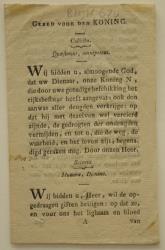 GEBED VOOR DEN KONING.
Collecta.
Quæsumus, omnipotens.
Wij bidden u, almoogende God,
dat uw Dienaar, onze Koning N,
die door uwe goedige beschikking het
rijksbestuur heeft aangevat, ook den
aanwas aller deugden verkrijge; op
dat hij met dezelven wel vercierd
zijnde, de gedrogten der ondeugden
vermijden, en tot u, die de weg, de
waarheid, en het leven zijt, begena-
digd geraken mag. Door onzen Heer.
Secreta.
Munera, Domine.
Wij bidden u, Heer, wil de op-
gedraagen giften heiligen: op dat ze,
en voor ons het lighaam en bloed
A van